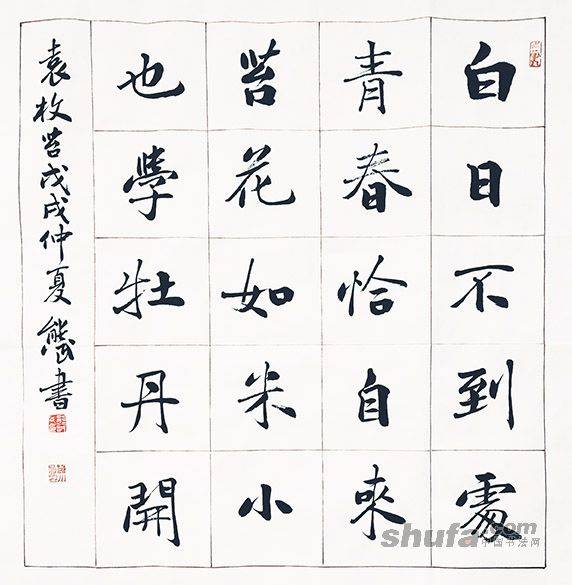 白日不到處
青春恰自來
苔花如米小
也學牡丹開
袁枚苔戊戌仲夏 書
shufa.com
中国书法网